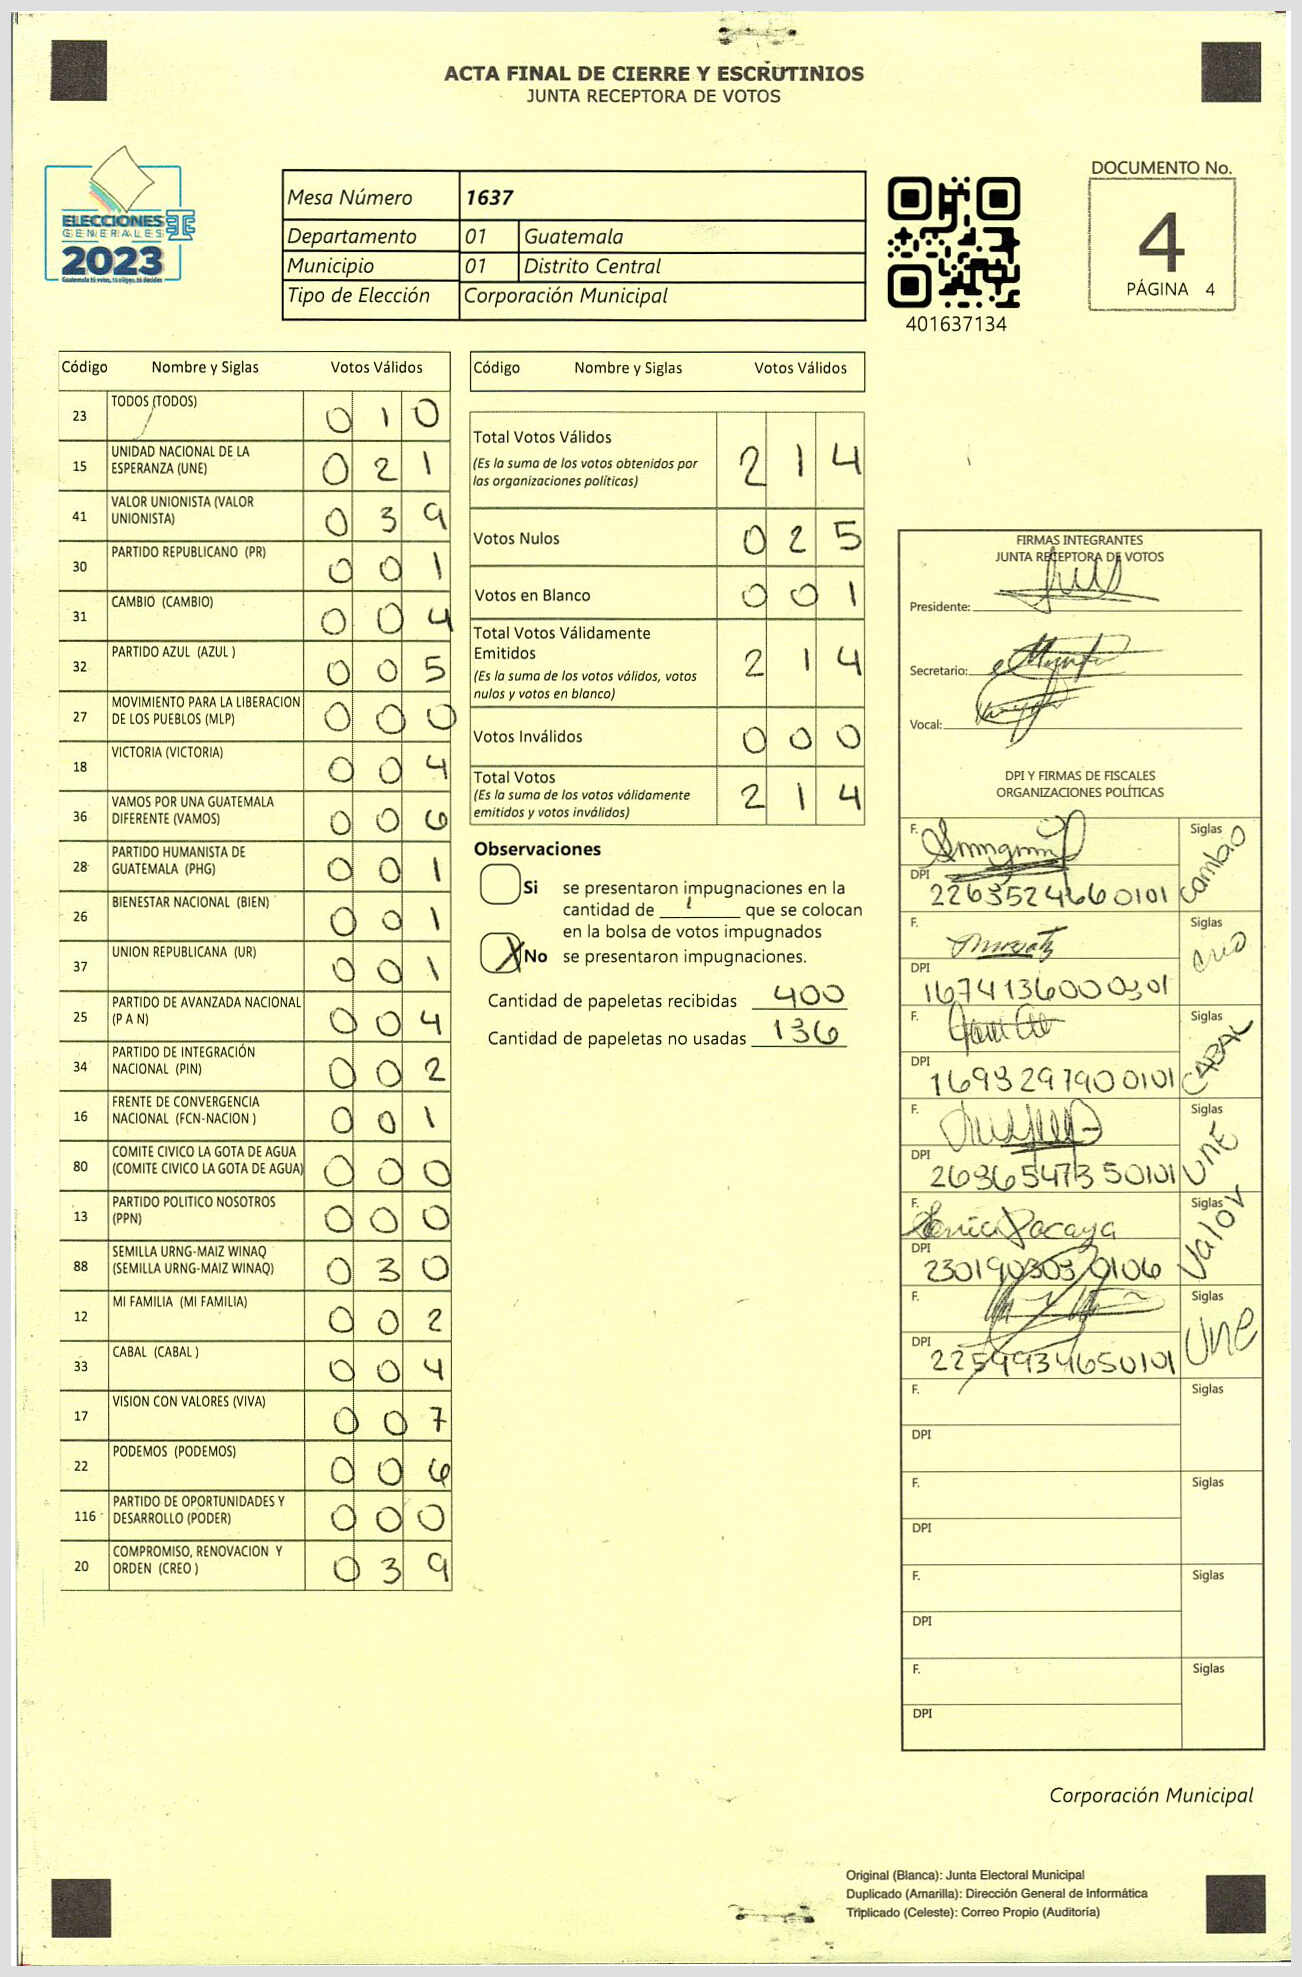 ACTA FINAL DE CIERRE Y ESCRUTINIOS
JUNTA RECEPTORA DE VOTOS
ELECCIONES
GENERALES
2023
Guatemala tú votas, tú eliges, tú decides
Mesa Número 1637
Departamento 01 Guatemala
Municipio 01 Distrito Central
Tipo de Elección Corporación Municipal
401637134
DOCUMENTO No.
4
PÁGINA 4
Código Nombre y Siglas Votos Válidos
23 TODOS (TODOS) 0 1 0
15 UNIDAD NACIONAL DE LA
ESPERANZA (UNE) 0 2 1
41 VALOR UNIONISTA (VALOR
UNIONISTA) 0 3 9
30 PARTIDO REPUBLICANO (PR) 0 0 1
31 CAMBIO (CAMBIO) 0 0 4
32 PARTIDO AZUL (AZUL ) 0 0 5
27 MOVIMIENTO PARA LA LIBERACION
DE LOS PUEBLOS (MLP) 0 0 0
18 VICTORIA (VICTORIA) 0 0 4
36 VAMOS POR UNA GUATEMALA
DIFERENTE (VAMOS) 0 0 6
28 PARTIDO HUMANISTA DE
GUATEMALA (PHG) 0 0 1
26 BIENESTAR NACIONAL (BIEN) 0 0 1
37 UNION REPUBLICANA (UR) 0 0 1
25 PARTIDO DE AVANZADA NACIONAL
(P A N) 0 0 4
34 PARTIDO DE INTEGRACIÓN
NACIONAL (PIN) 0 0 2
16 FRENTE DE CONVERGENCIA
NACIONAL (FCN-NACION ) 0 0 1
80 COMITE CIVICO LA GOTA DE AGUA
(COMITE CIVICO LA GOTA DE AGUA) 0 0 0
13 PARTIDO POLITICO NOSOTROS
(PPN) 0 0 0
88 SEMILLA URNG-MAIZ WINAQ
(SEMILLA URNG-MAIZ WINAQ) 0 3 0
12 MI FAMILIA (MI FAMILIA) 0 0 2
33 CABAL (CABAL ) 0 0 4
17 VISION CON VALORES (VIVA) 0 0 7
22 PODEMOS (PODEMOS) 0 0 6
116 PARTIDO DE OPORTUNIDADES Y
DESARROLLO (PODER) 0 0 0
20 COMPROMISO, RENOVACION Y
ORDEN (CREO ) 0 3 9
Código Nombre y Siglas Votos Válidos
Total Votos Válidos 2 1 4
(Es la suma de los votos obtenidos por
las organizaciones políticas)
Votos Nulos 0 2 5
Votos en Blanco 0 0 1
Total Votos Válidamente
Emitidos 2 1 4
(Es la suma de los votos válidos, votos
nulos y votos en blanco)
Votos Inválidos 0 0 0
Total Votos 2 1 4
(Es la suma de los votos válidamente
emitidos y votos inválidos)
Observaciones
Si se presentaron impugnaciones en la
cantidad de ______ que se colocan
en la bolsa de votos impugnados
X No se presentaron impugnaciones.
Cantidad de papeletas recibidas 400
Cantidad de papeletas no usadas 136
FIRMAS INTEGRANTES
JUNTA RECEPTORA DE VOTOS
Presidente:
Secretario:
Vocal:
DPI Y FIRMAS DE FISCALES
ORGANIZACIONES POLÍTICAS
F. Siglas Cambio
DPI 2263524660101
F. Siglas
DPI 1674136000301
F. Siglas CABAL
DPI 1693297900101
F. Siglas UNE
DPI 2636547350101
F. Siglas Valor
DPI 2301903030106
F. Siglas Une
DPI 2259934650101
F. Siglas
DPI
F. Siglas
DPI
F. Siglas
DPI
F. Siglas
DPI
Corporación Municipal
Original (Blanca): Junta Electoral Municipal
Duplicado (Amarilla): Dirección General de Informática
Triplicado (Celeste): Correo Propio (Auditoría)